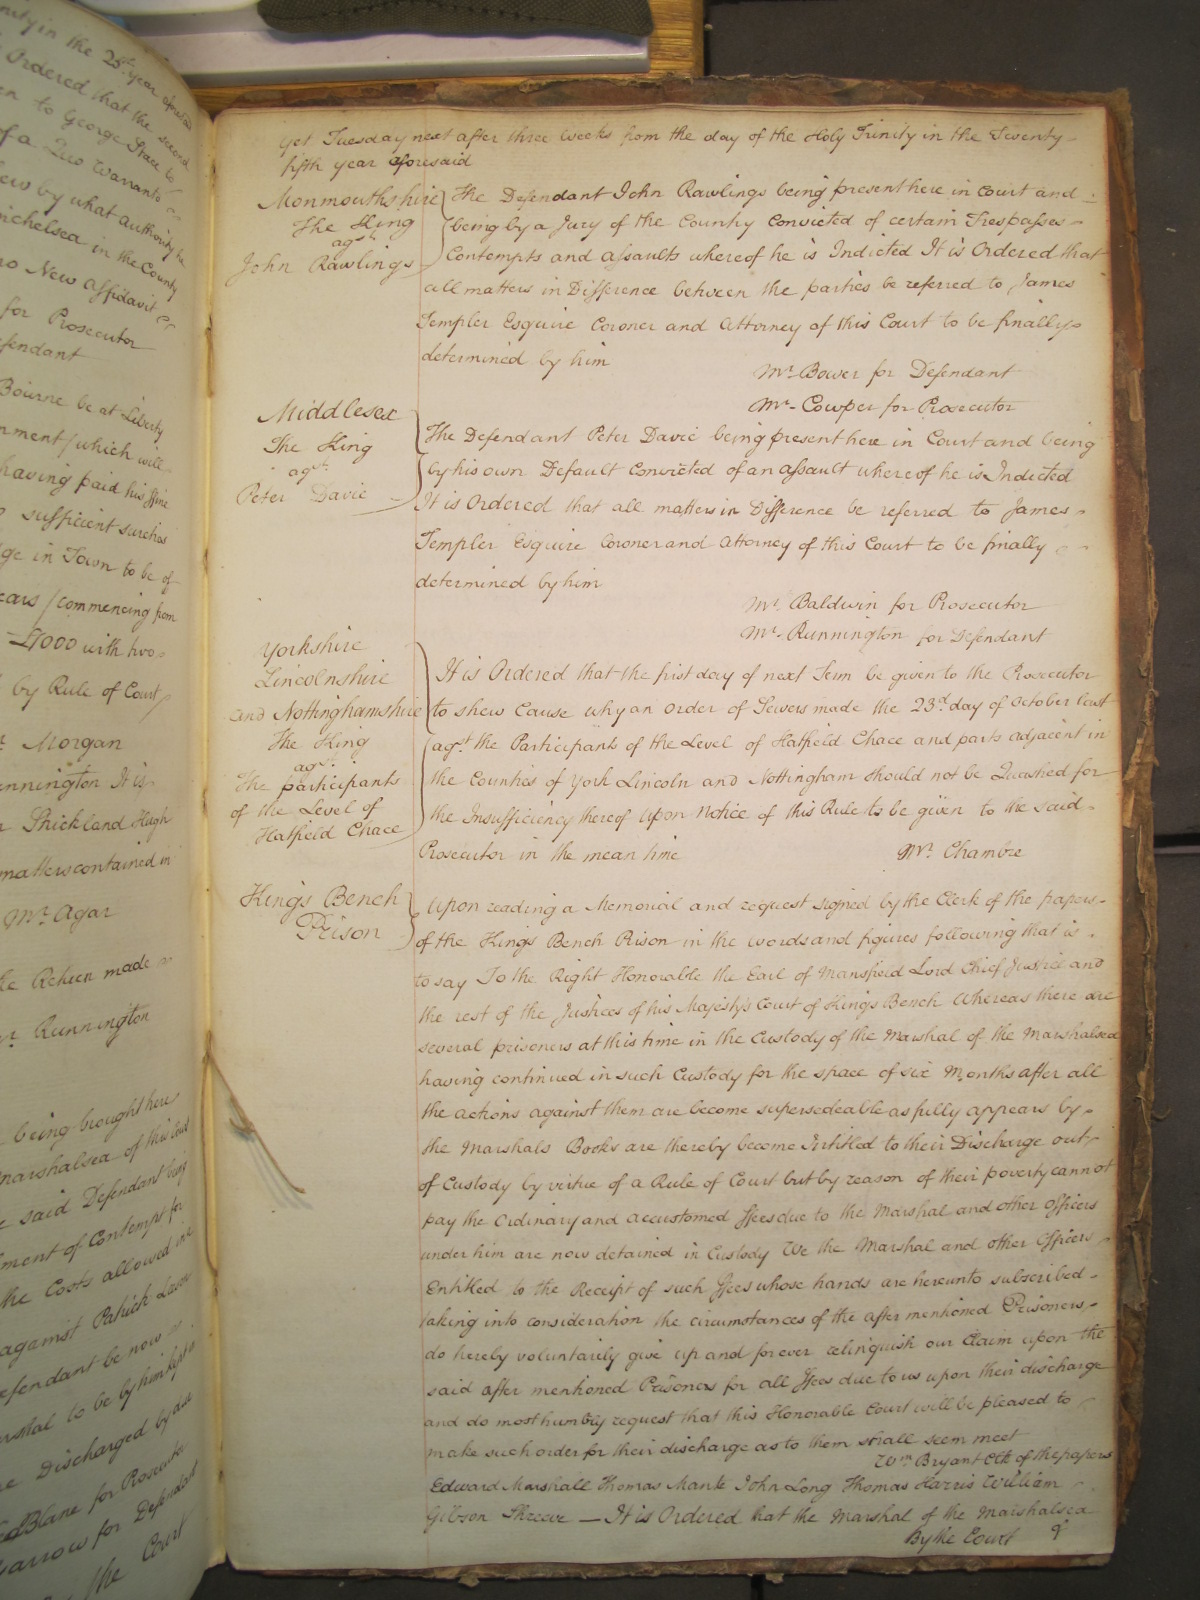 nity in the 25th year aforesaid
Ordered that the second
en to George Stace to
of a Quo Warranto
hew by what authority he
inchelsea in the County
no New Affidavit
for Prosecutor
efendant
Bourne be at Liberty
nment (which will
having paid his ffine
sufficient sureties
ge in Town to be of
ears (commencing from
£1000 with two
by Rule of Court
Morgan
nnington It is
Strickland Hugh
matters contained in
Mr. Agar
the Return made
Mr. Runnington
being brought here
Marshalsea of this Court
said Defendant being
ment of Contempt for
the Costs allowed in
against Patrick
efendant be now
arshal to be by him kept in
Discharged by due
Blane for Prosecutor
arrow for Defendant
the Court
yet Tuesday next after three weeks from the day of the Holy Trinity in the Twenty
fifth year aforesaid
Monmouthshire
The King
agst.
John Rawlings
The Defendant John Rawlings being present here in Court and
being by a Jury of the Country Convicted of certain Trespasses
Contempts and assaults whereof he is Indicted It is Ordered that
all matters in Difference between the parties be referred to James
Templer Esquire Coroner and Attorney of this Court to be finally
determined by him
Mr. Bower for Defendant
Mr. Cowper for Prosecutor
Middlesex
The King
agst.
Peter Davie
The Defendant Peter Davie being present here in Court and being
by his own Default Convicted of an assault whereof he is Indicted
It is Ordered that all matters in Difference be referred to James
Templer Esquire Coroner and Attorney of this Court to be finally
determined by him
Mr. Baldwin for Prosecutor
Mr. Runnington for Defendant
Yorkshire
Lincolnshire
and Nottinghamshire
The King
agst.
The participants
of the Level of
Hatfield Chace
It is Ordered that the first day of next Term be given to the Prosecutor
to shew Cause why an order of Sewers made the 23d. day of October last
agst. the Participants of the Level of Hatfield Chace and parts adjacent in
the Counties of York Lincoln and Nottingham should not be Quashed for
the Insufficiency thereof Upon Notice of this Rule to be given to the said
Prosecutor in the mean time
Mr. Chambre
Kings Bench
Prison
Upon reading a Memorial and request signed by the Clerk of the papers
of the Kings Bench Prison in the words and figures following that is
to say To the Right Honorable the Earl of Mansfield Lord Chief Justice and
the rest of the Justices of his Majestys Court of Kings Bench Whereas there are
several prisoners at this time in the Custody of the Marshal of the Marshalsea
having continued in such Custody for the space of six Months after all
the actions against them are become supersedeable as fully appears by
the Marshals Books are thereby become Intitled to their Discharge out
of Custody by virtue of a Rule of Court but by reason of their poverty cannot
pay the Ordinary and accustomed ffees due to the Marshal and other Officers
under him are now detained in Custody We the Marshal and other Officers
Entitled to the Receipt of such ffees whose hands are hereunto subscribed
taking into consideration the circumstances of the after mentioned Prisoners
do hereby voluntarily give up and for ever relinquish our Claim upon the
said after mentioned Prisoners for all ffees due to us upon their discharge
and do most humbly request that this Honorable Court will be pleased to
make such order for their discharge as to them shall seem meet
Wm. Bryant Clk of the papers
Edward Marshall Thomas Mante John Long Thomas Harris William
Gibson Threeve — It is Ordered that the Marshal of the Marshalsea
By the Court